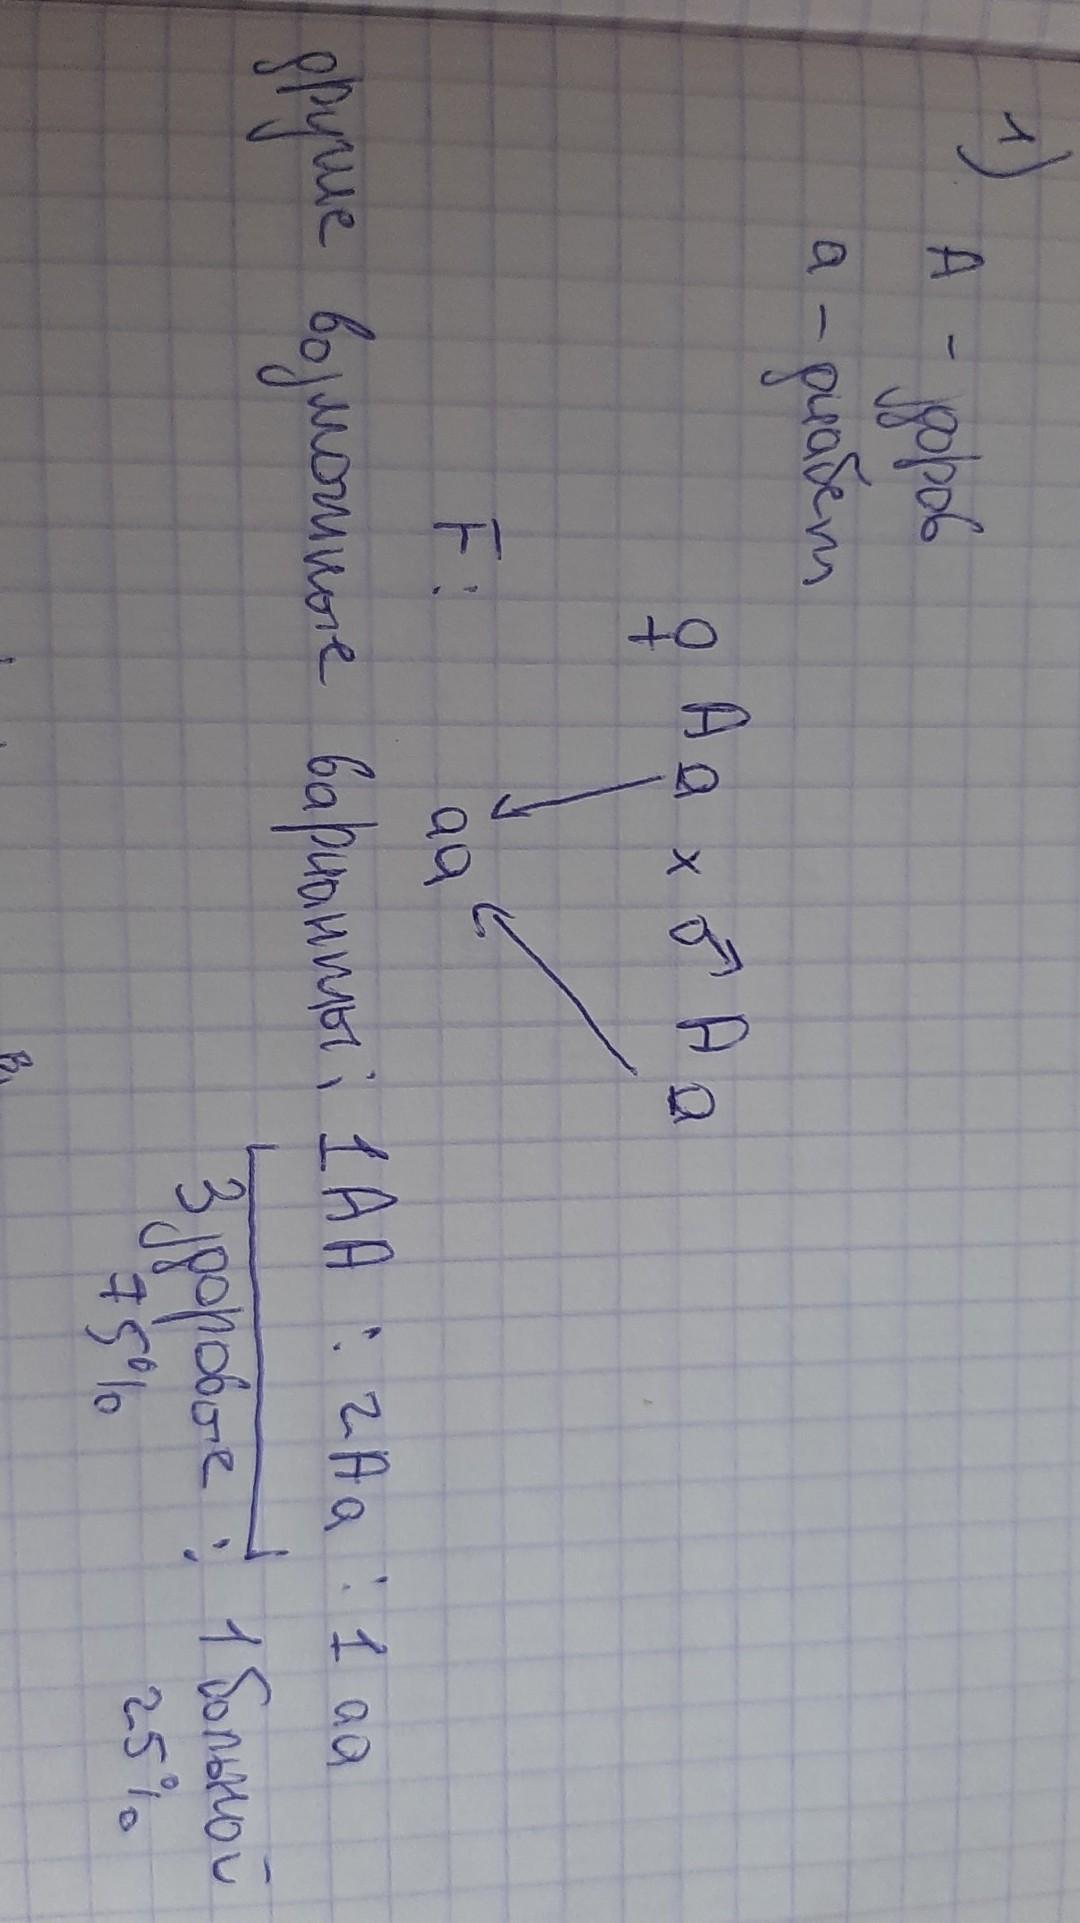 1) А - здоров
а - диабет
♀ Аа х ♂ Аа
F: аа
другие возможные варианты: 1АА : 2Аа : 1 аа
3 здоровые : 1 больной
75% 25%